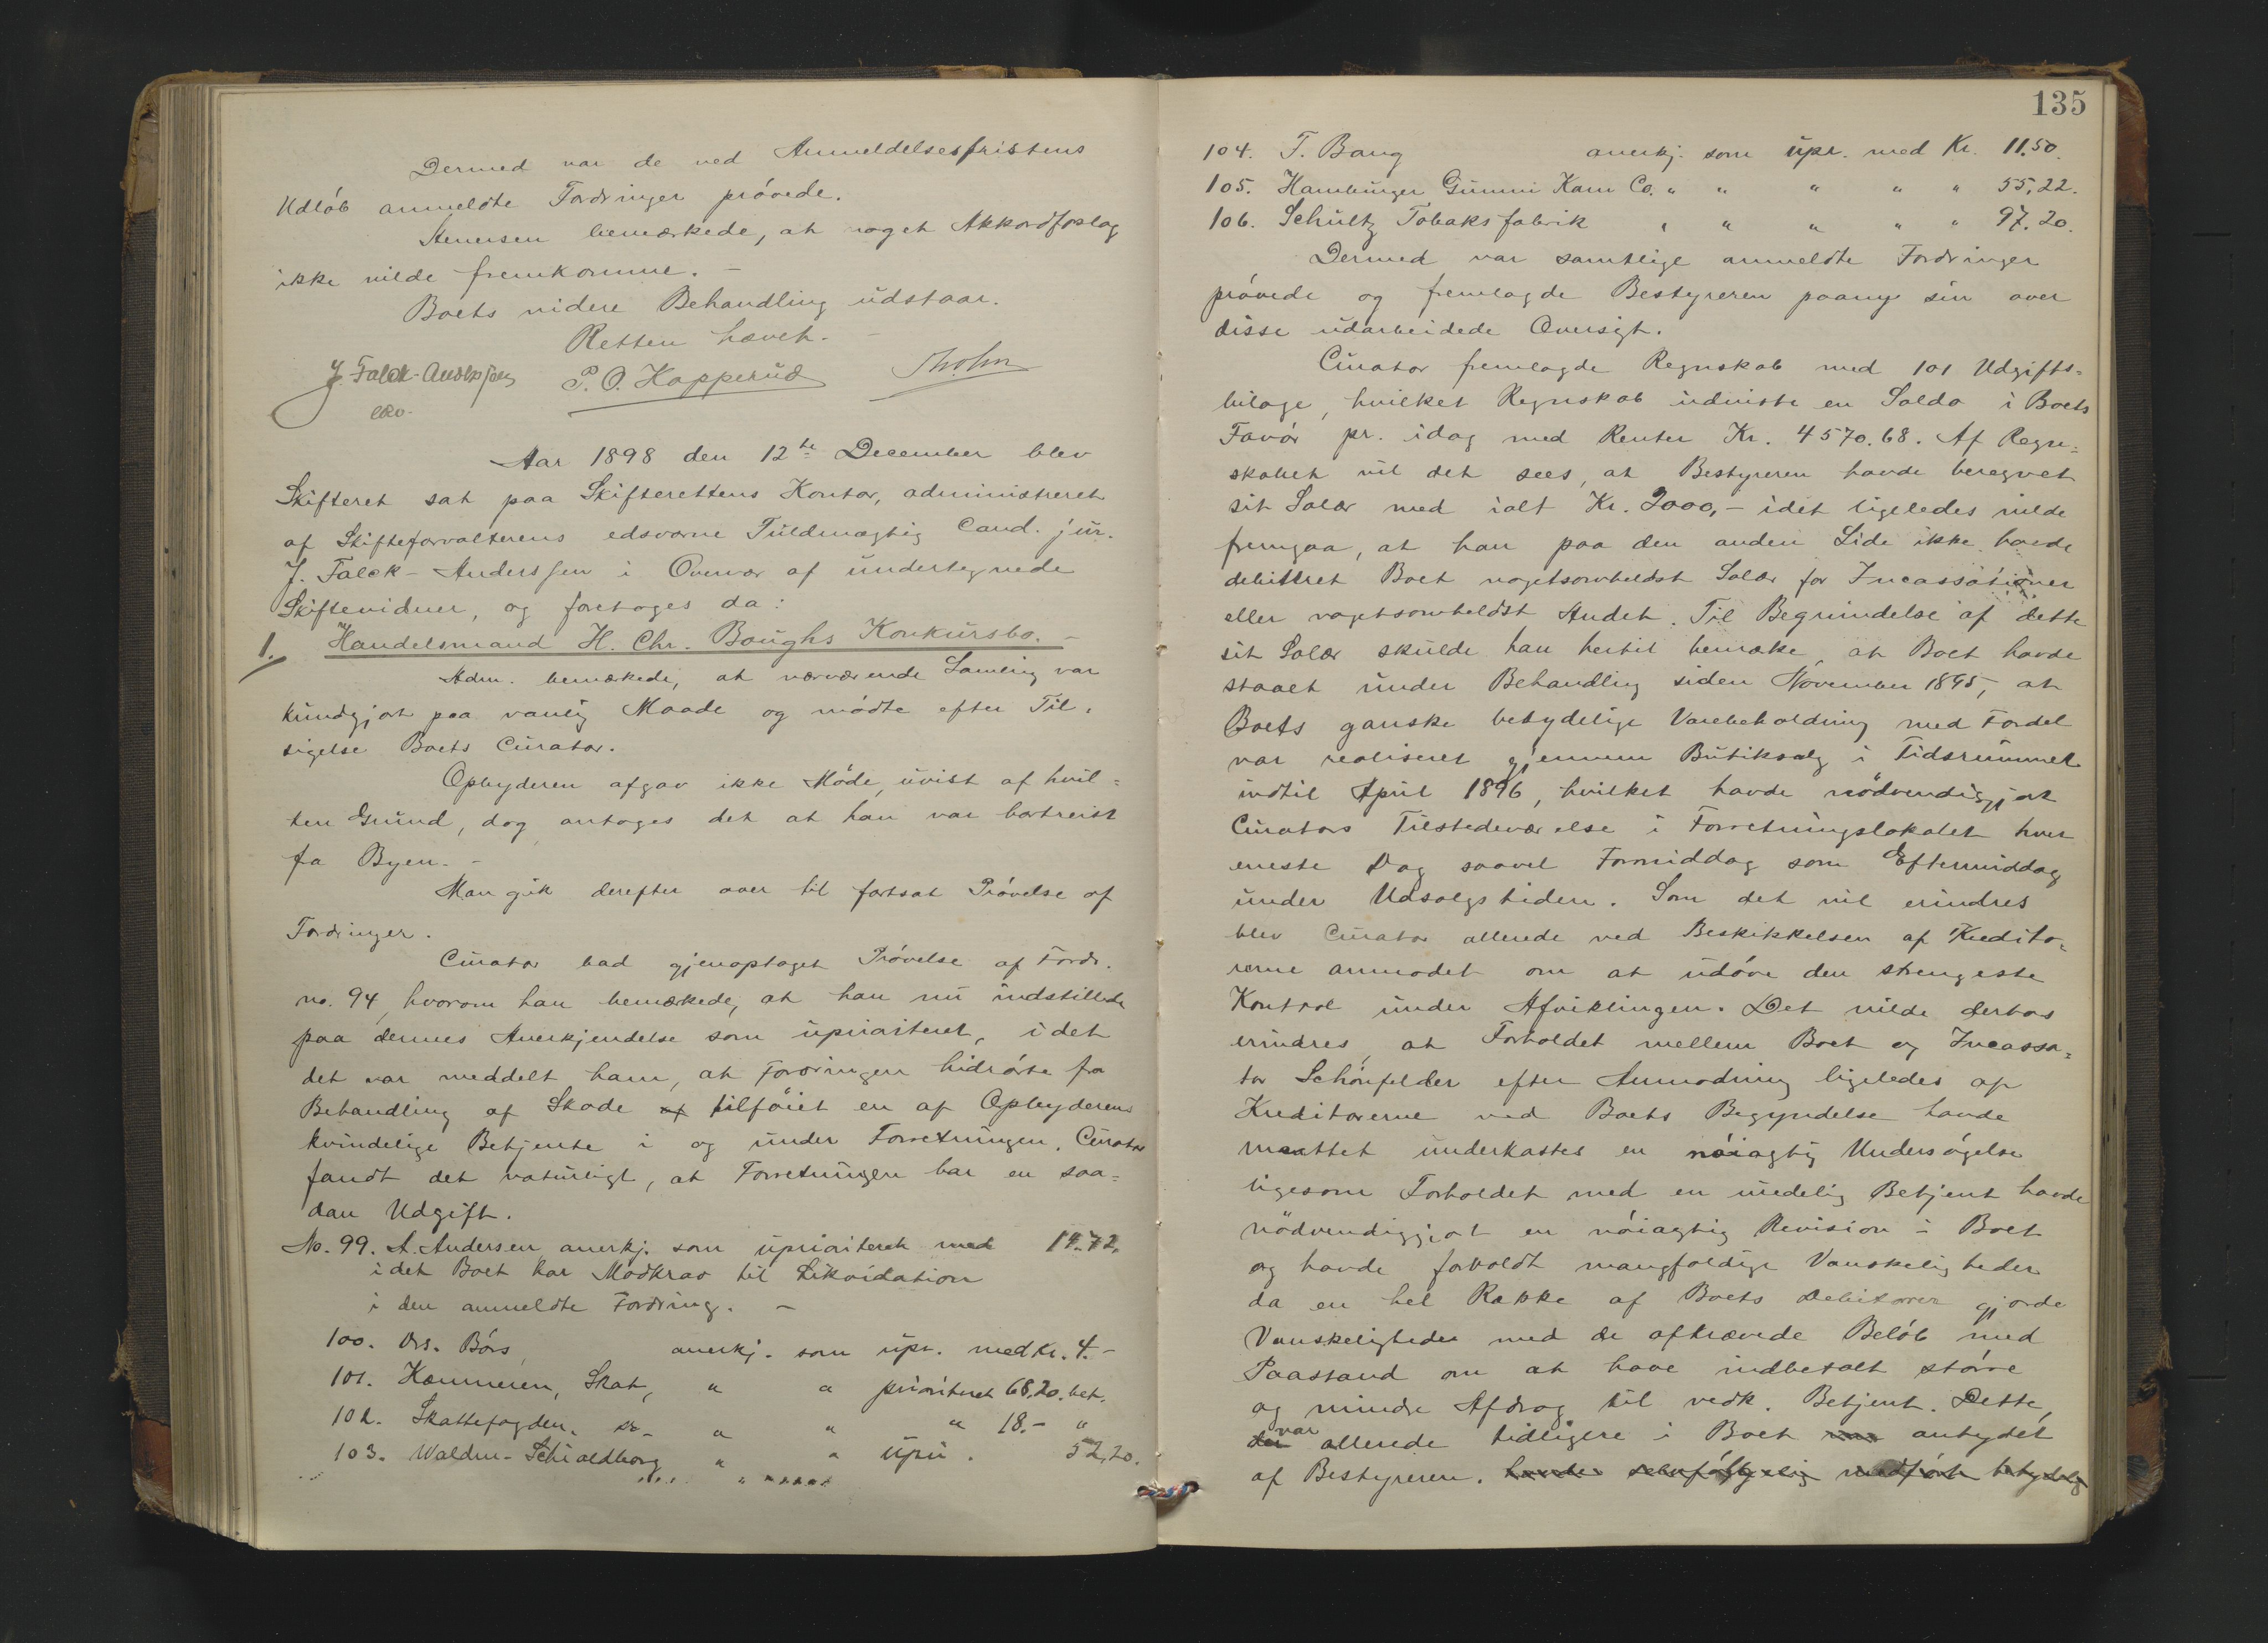 Dermed var de ved Anmeldelsesfristens
Udløb anmeldte Fordringer prøvede.
Stenersen bemærkede, at noget Akkordforslag
ikke vilde fremkomme. –
Boets videre Behandling udstaar.
Retten hævet. –
J. Falck-Anderssen P. O. Kopperud
Aar 1898 den 12te December blev
Skifteret sat paa Skifterettens Kontor, administreret
af Skifteforvalterens edsvorne Fuldmægtig Cand. jur.
J. Falck-Anderssen i Overvær af undertegnede
Skiftevidner, og foretoges da:
1. Handelsmand H. Chr. Boughs Konkursbo. –
Adm. bemærkede, at nærværende Samling var
kundgjort paa vanlig Maade og mødte efter Til-
sigelse Boets Curator.
Opbyderen afgav ikke Møde, uvist af hvil-
ken Grund, dog antoges det at han var bortreist
fra Byen. –
Man gik derefter over til fortsat Prøvelse af
Fordringer.
Curator bad gjenoptaget Prøvelse af Fordr.
no. 94, hvorom han bemærkede, at han nu indstillede
paa dennes Anerkjendelse som uprioriteret, idet
det var meddelt ham, at Fordringen hidrørte fra
Behandling af Skade af tilføiet en af Opbyderens
kvindelige Betjente i og under Forretningen. Curator
fandt det naturligt, at Forretningen bar en saa-
dan Udgift.
No. 99. A. Andersen anerkj. som uprioriteret med 17.72.
idet Boet har Modkrav til Likvidation
i den anmeldte Fordring. –
100. Drs. Børs, anerkj. som upr. med Kr. 4.–
101. Kæmneren, Skat, " " prioriteret 68.20. bet.
102. Skattefogden, do– " " " 18.– "
103. Waldm. Schialdborg " " upri. 52,20.
135
104. T. Bang anerkj. som upr. med Kr. 11.50.
105. Hamburger Gummi Kam Co. " " " " " 55,22.
106. Schultz Tobaksfabrik " " " " " 97.20.
Dermed var samtlige anmeldte Fordringer
prøvede og fremlagde Bestyreren paany sin over
disse udarbeidede Oversigt.
Curator fremlagde Regnskab med 101 Udgifts-
bilage, hvilket Regnskab udviste en Saldo i Boets
Favør pr. idag med Renter Kr. 4570.68. Af Regn-
skabet vil det sees, at Bestyreren havde beregnet
sit Salær med ialt Kr. 2000,– idet ligeledes vilde
fremgaa, at han paa den anden Side ikke havde
debittret Boet nogetsomheldst Salær for Incassationer
eller nogetsomheldst Andet. Til Begrundelse af dette
sit Salær skulde han hertil bemærke, at Boet havde
staaet under Behandling siden November 1895, at
Boets ganske betydelige Varebeholdning med Fordel
var realiseret gjennem Butiksalg i Tidsrummet
indtil April 1896, hvilket havde nødvendiggjort
Curators Tilstedeværelse i Forretningslokalet hver
eneste Dag saavel Formiddag som Eftermiddag
under Udsalgstiden. Som det vil erindres
blev Curator allerede ved Beskikkelsen af Kredito-
rerne anmodet om at udøve den strengeste
Kontrol under Afviklingen. Det vilde derhos
erindres, at Forholdet mellem Boet og Incassa-
tor Schönfelder efter Anmodning ligeledes af
Kreditorerne ved Boets Begyndelse havde
maattet underkastes en nøiagtig Undersøgelse
ligesom Forholdet med en uredelig Betjent havde
nødvendiggjort en nøiagtig Revision i Boet
og havde forvoldt mangfoldige Vanskeligheder
da en hel Række af Boets Debitorer gjorde
Vanskeligheder med de afkrævede Beløb med
Paastand om at have indbetalt større
og mindre Afdrag til vedk. Betjent. Dette,
der var allerede tidligere i Boet var antydet
af Bestyreren. havde selvfølgelig medført betydelig